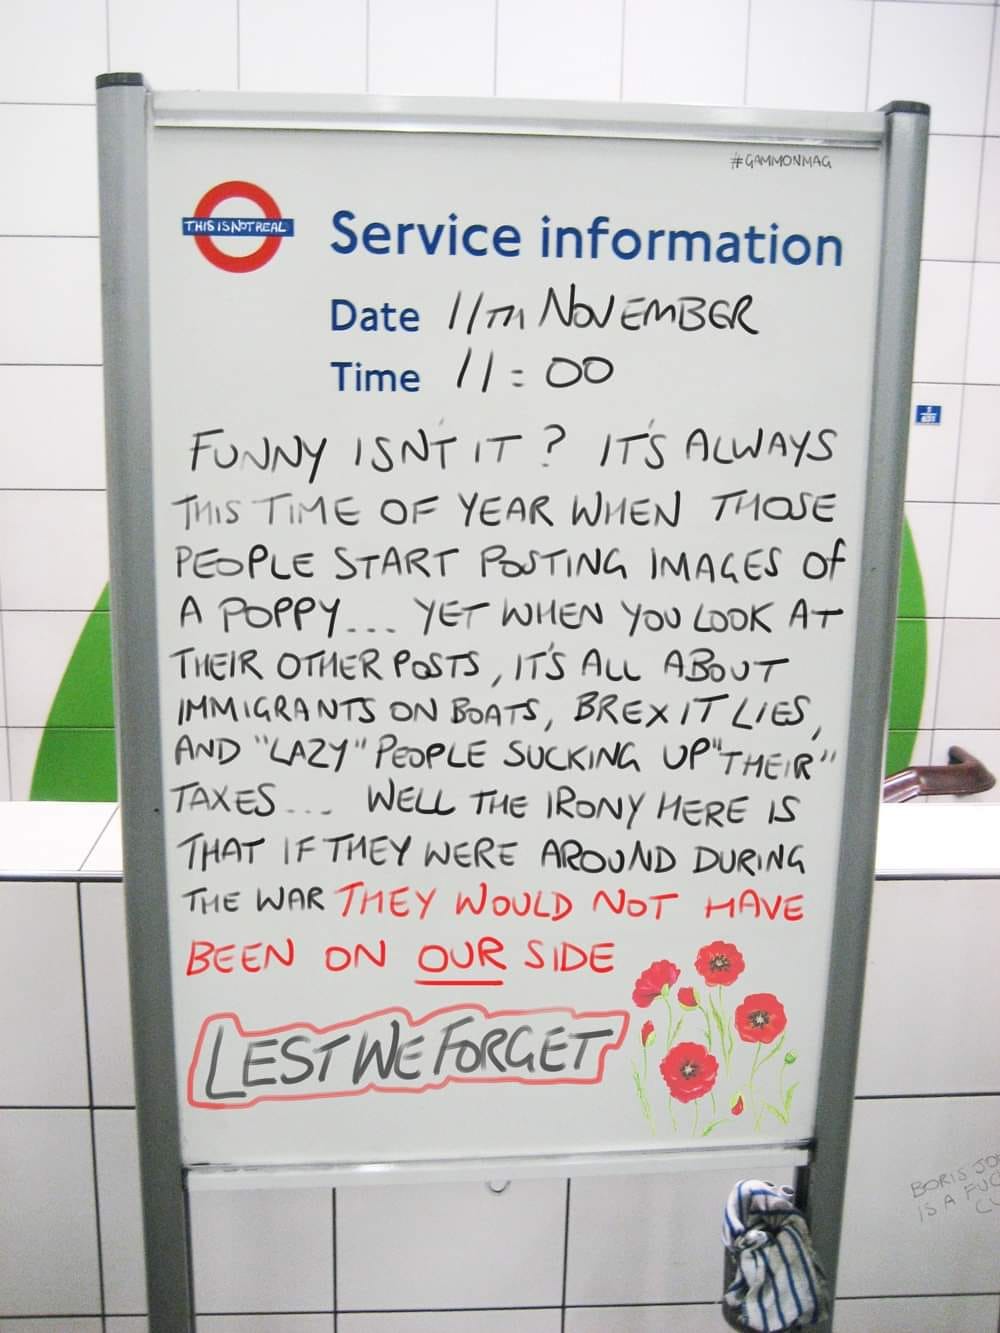 #GAMMONMAG
THIS IS NOT REAL
Service information
Date 11TH NOVEMBER
Time 11:00
FUNNY ISN'T IT? IT'S ALWAYS
THIS TIME OF YEAR WHEN THOSE
PEOPLE START POSTING IMAGES OF
A POPPY... YET WHEN YOU LOOK AT
THEIR OTHER POSTS, IT'S ALL ABOUT
IMMIGRANTS ON BOATS, BREXIT LIES,
AND "LAZY" PEOPLE SUCKING UP "THEIR"
TAXES... WELL THE IRONY HERE IS
THAT IF THEY WERE AROUND DURING
THE WAR THEY WOULD NOT HAVE
BEEN ON OUR SIDE
LEST WE FORGET
BORIS JO
IS A FUC